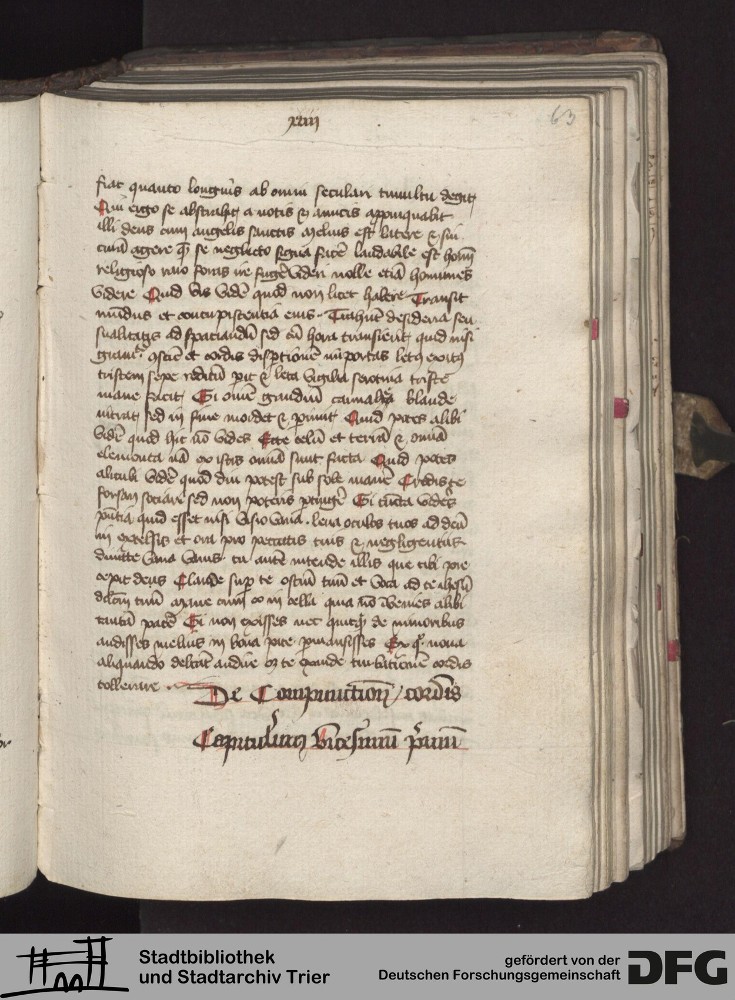 xxiiij
63
fiat quanto longius ab omni seculari tumultu degit
Qui ergo se abstrahit a notis et amicis appropinquabit
illi deus cum angelis sanctis Melius est latere et sui
curam agere quam se neglecto signa facere laudabile est homini
religioso raro foras ire fugere videri nolle etiam homines
videre Quid vis videre quod non licet habere Transit
mundus et concupiscentia eius Trahunt desideria sen
sualitatis ad spaciandum sed cum hora transierit quid nisi
gravitatem conscientie et cordis dispersionem importas letus exitus
tristem sepe reditum parit et leta vigilia serotina triste
mane facit Si omne gaudium carnale blande
intrat sed in fine mordet et perimit Quid potes alibi
videre quod hic non vides Ecce celum et terra et omnia
elementa nam ex istis omnia sunt facta Quid potes
alicubi videre quod diu potest sub sole manere Credis te
forsan sociare sed non poteris pertingere Si cuncta videres
presentia quid esset nisi visio vana leva oculos tuos ad deum
in excelsis et ora pro peccatis tuis et negligentiis
dimitte vana vanis tu autem intende illis que tibi pre
cepit deus Claude super te ostium tuum et voca ad te ihesum
dilectum tuum Mane cum eo in cella quia non invenies alibi
tantam pacem Si non exisses nec quicquam de rumoribus
audisses melius in bona pace permansisses Ex quo nova
aliquando delectat audire oportet te exinde turbationem cordis
tollerare
De Compunctione cordis
Capitulum vicesimum primum
Stadtbibliothek
und Stadtarchiv Trier
gefördert von der
Deutschen Forschungsgemeinschaft
DFG